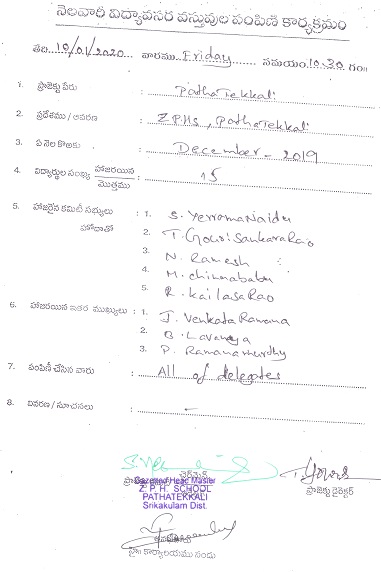 నెలవారీ విద్యావసర వస్తువుల పంపిణి కార్యక్రమం
తేది 10/01/2020 వారము Friday సమయం 10.30 గం॥
1. ప్రాజెక్టు పేరు : PathaTekkali
2. ప్రదేశము / ఆవరణ : ZPHS, PathaTekkali
3. ఏ నెల కొఱకు : December - 2019
4. విద్యార్థుల సంఖ్య హాజరయిన / మొత్తము : 15
5. హాజరైన కమిటీ సభ్యులు : 1. S. Yerromanaidu
హోదాతో 2. T. Gouri Sankara Rao
3. N. Ramesh
4. M. chinnababu
5. R. Kailasa Rao
6. హాజరయిన ఇతర ముఖ్యులు : 1. J. Venkata Ramana
2. B. Lavanya
3. P. Ramanamurdhy
7. పంపిణీ చేసిన వారు : All of delegates
8. వివరణ / సూచనలు : -
చైర్మన్
Gazetted Head Master
Z. P. H. SCHOOL
PATHATEKKALI
Srikakulam Dist.
ప్రాజెక్టు డైరెక్టర్
హై॥ కార్యాలయము నందు